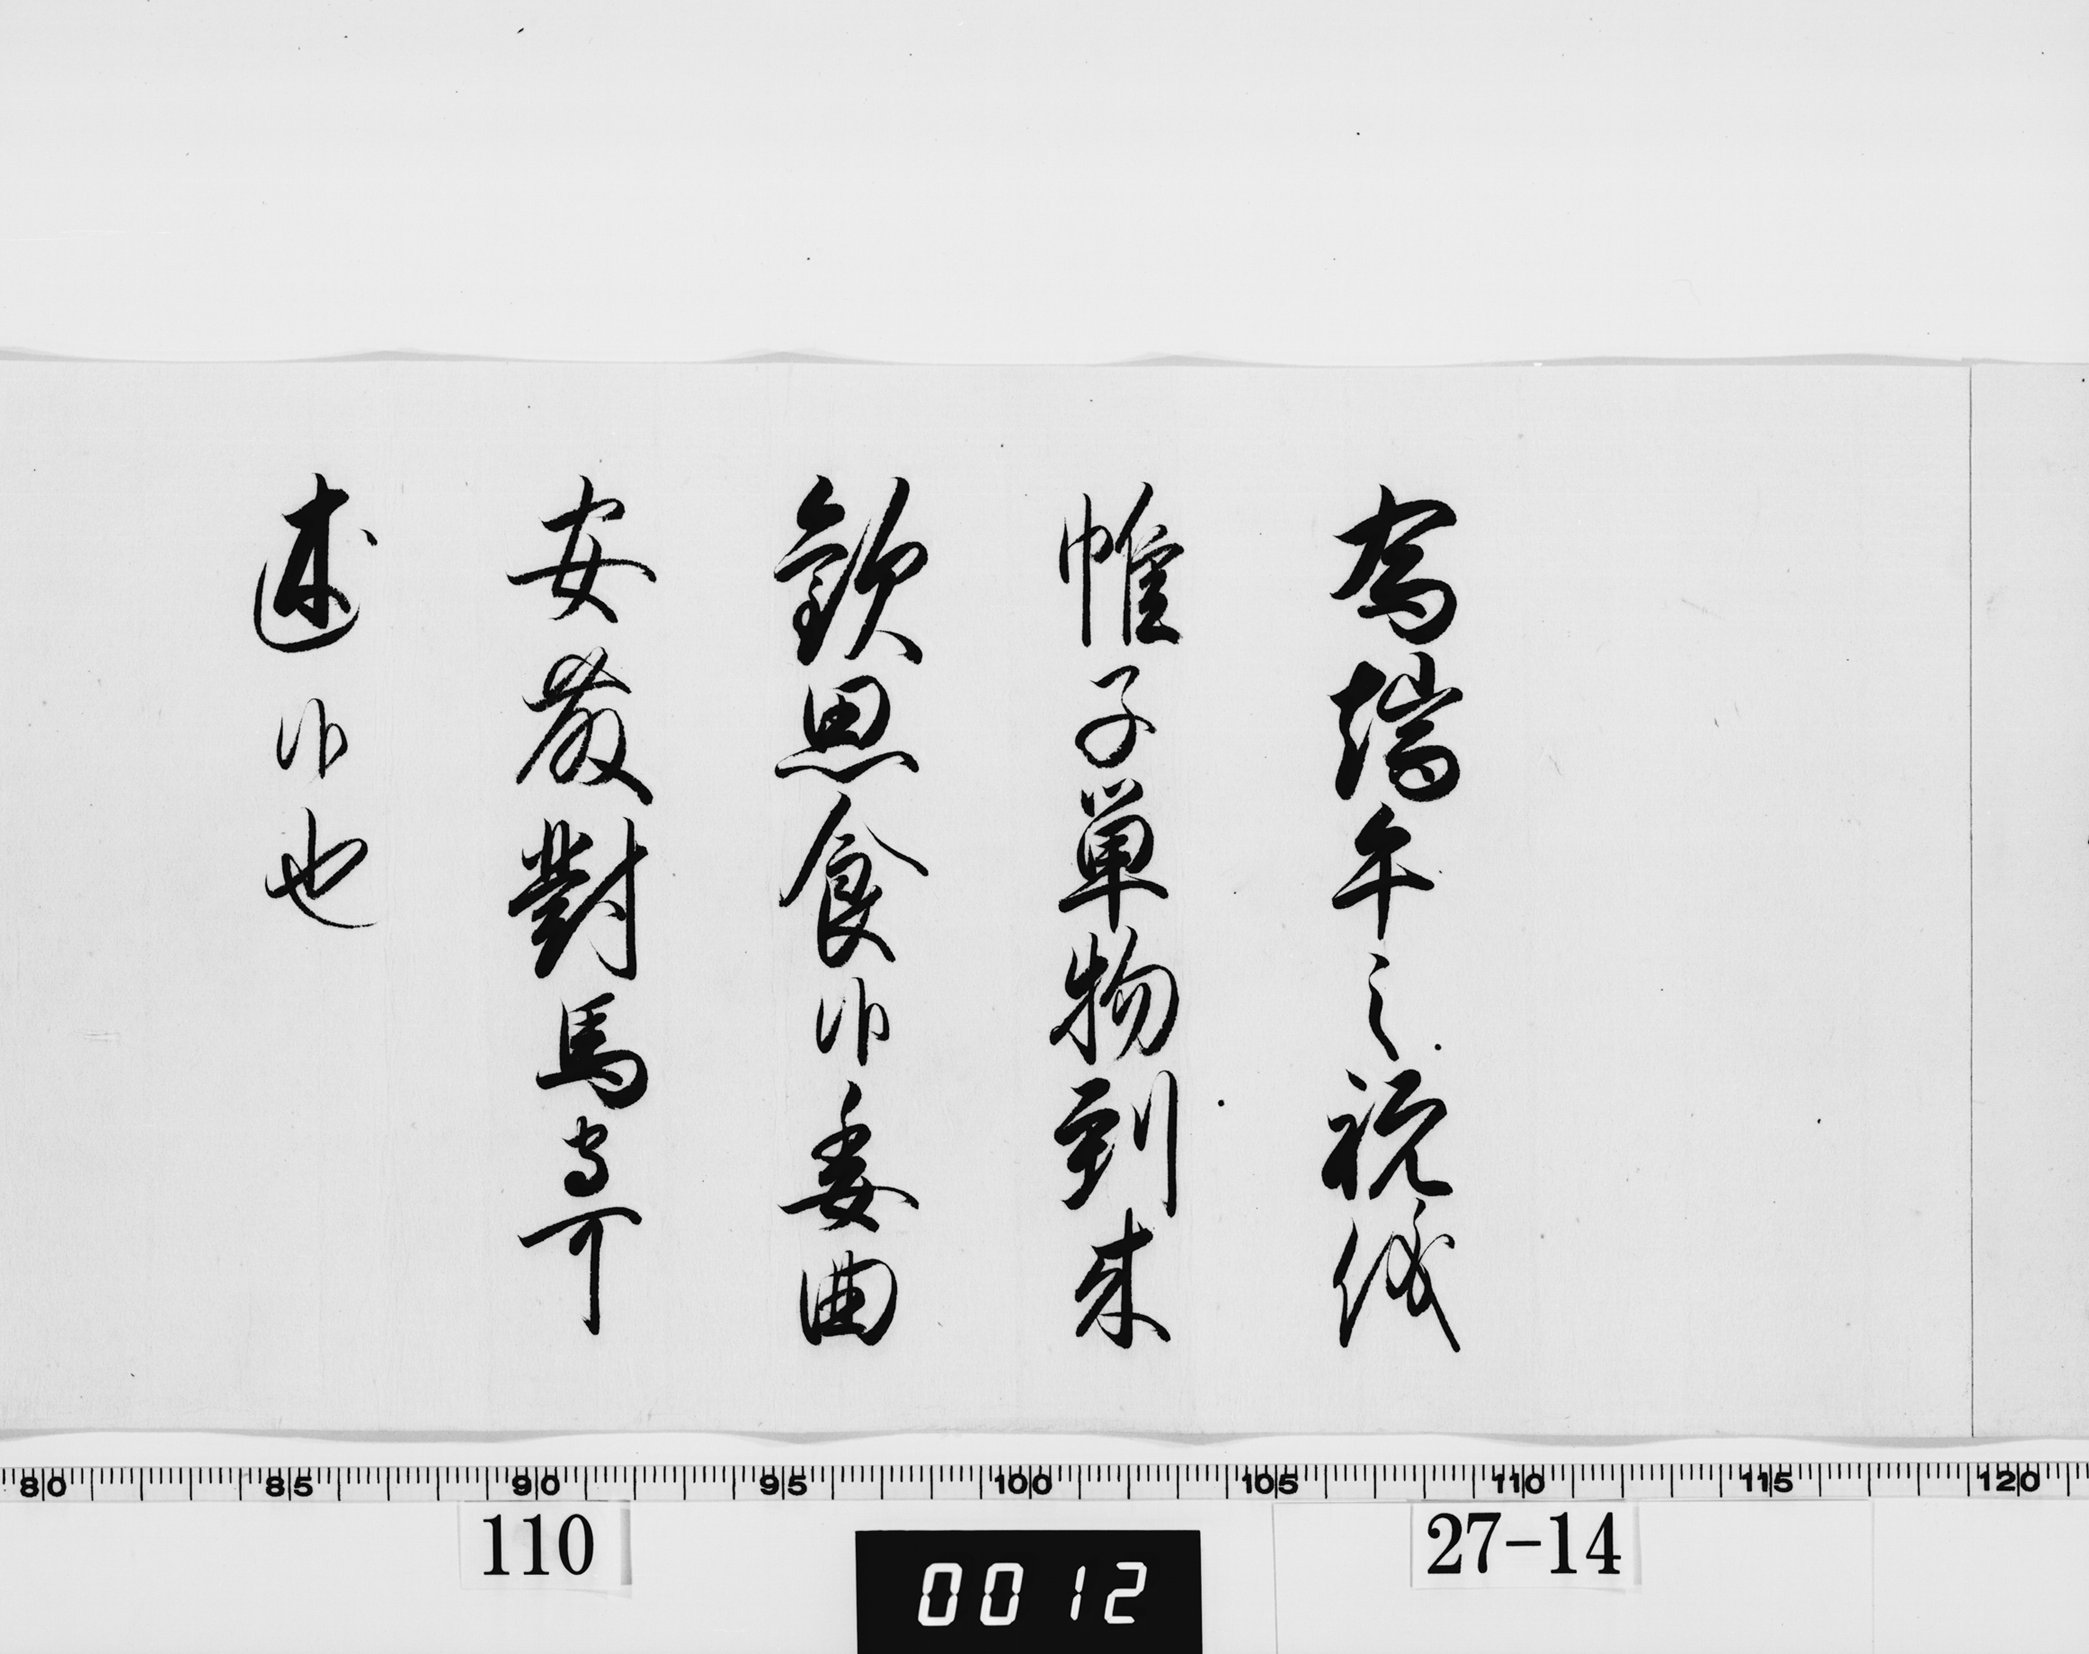 為端午之祝儀
帷子單物到来
歓思食候委曲
安藤對馬守可
述候也
80 85 90 95 100 105 110 115 120
110
0012
27-14